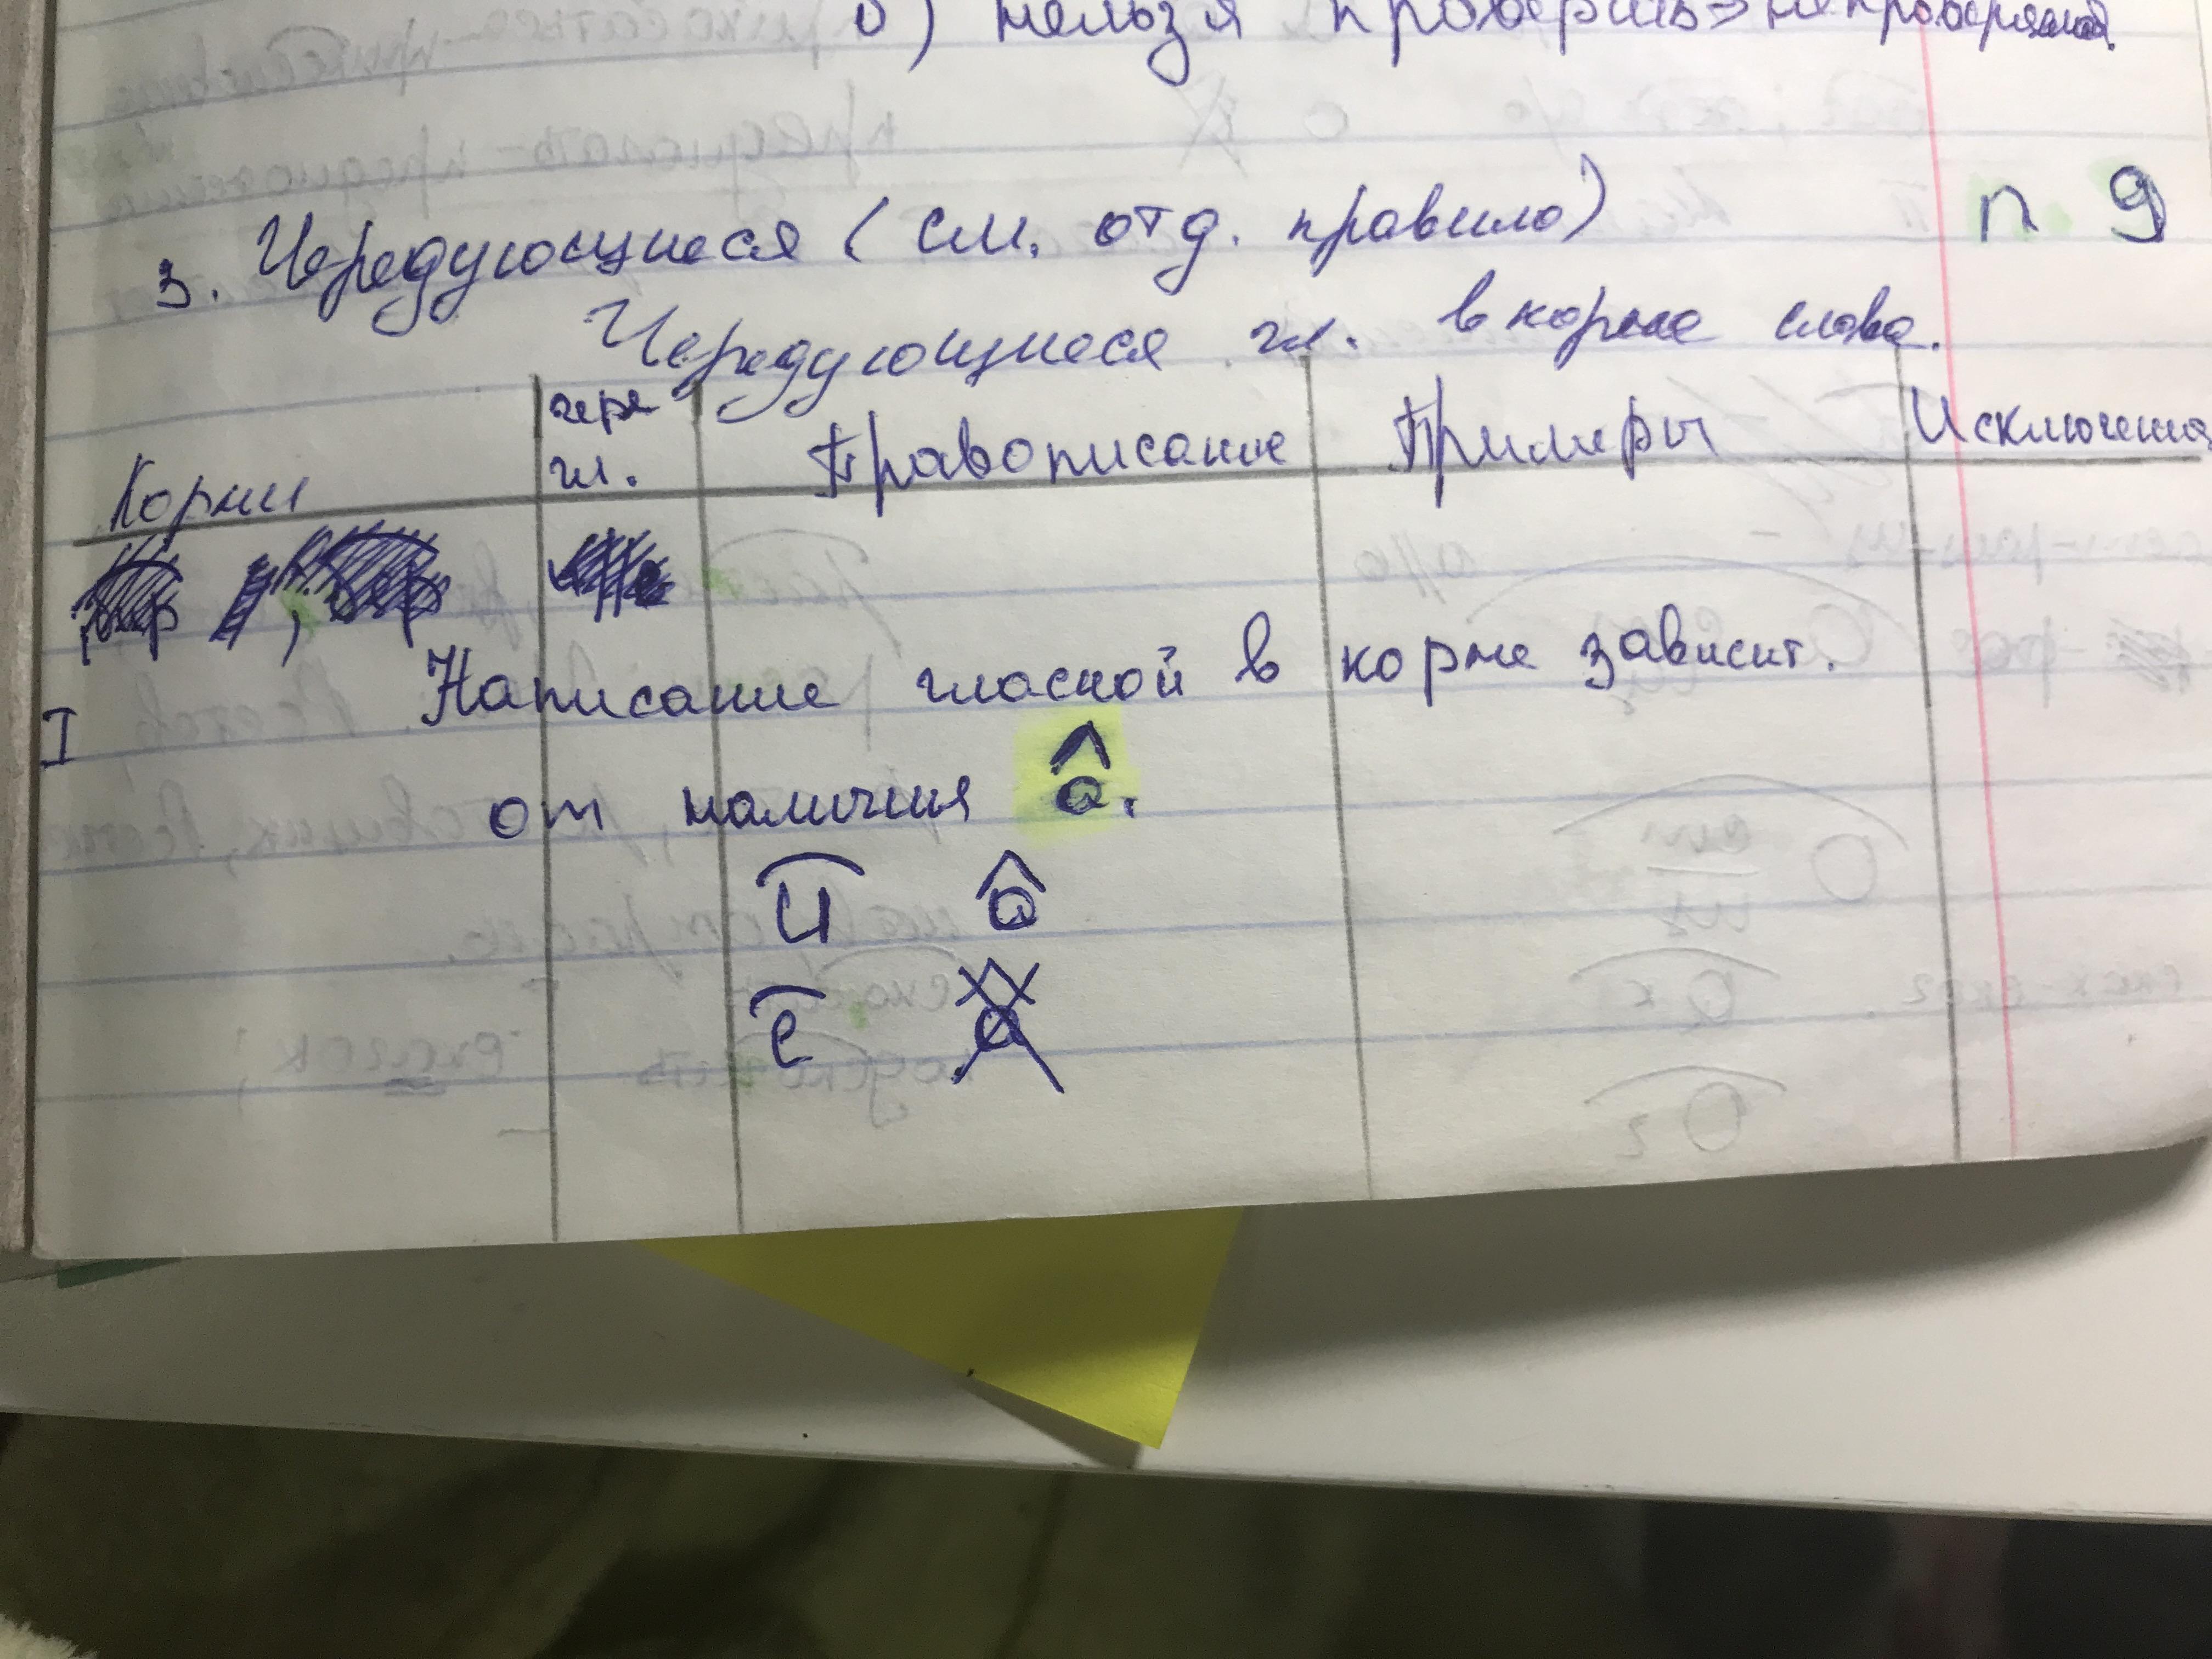 б) нельзя проверить => непроверяемая.
3. Чередующиеся (см. отд. правило) п 9
Чередующиеся гл. в корне слова.
Корни гл. Правописание Примеры Исключения
I Написание гласной в корне зависит.
от наличия а.
и а
е а